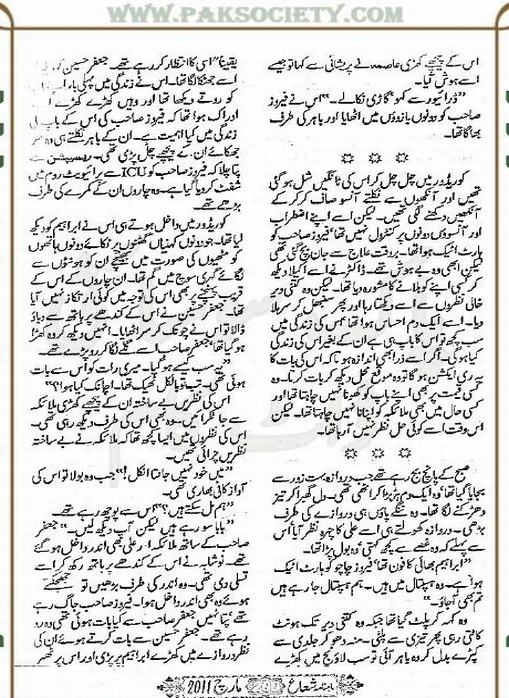 WWW.PAKSOCIETY.COM
اس کے پیچھے کھڑی عاصمہ نے پریشانی سے کہا تو جیسے
اسے ہوش آیا۔
"ڈرائیور سے کہو گاڑی نکالے۔" اس نے فیروز
صاحب کو دونوں بازوؤں میں اٹھایا اور باہر کی طرف
بھاگا تھا۔
کوریڈور میں چل چل کر اس کی ٹانگیں شل ہو گئی
تھیں اور آنکھوں سے نکلتے آنسو صاف کر کر کے
آنکھیں دکھنے لگی تھیں۔ لیکن اسے اپنے اضطراب
اور آنسوؤں پر کنٹرول نہیں تھا، فیروز صاحب کو
ہارٹ اٹیک ہوا تھا۔ بروقت علاج سے جان بچ گئی تھی
لیکن ابھی وہ بے ہوش تھے۔ ڈاکٹر نے اسے اکیلا دیکھ
کر کسی اپنے کو بلانے کا مشورہ دیا تھا۔ لیکن وہ کتنی دیر
خالی نظروں سے اسے دیکھتا رہا اور پھر سنبھل کر سر ہلا
دیا۔ اسے ایک دم احساس ہوا تھا، اس کی زندگی میں
سب کچھ تو اس کا باپ ہی ہے ان کے بغیر اس کی زندگی
کیا ہو گی۔ اگر اسے ذرا بھی اندازہ ہوتا کہ اس کی بات کا
یہ ری ایکشن ہو گا تو وہ موقع محل دیکھ کر بات کرتا۔ وہ
کسی قیمت پر بھی اپنے باپ کو کھونا نہیں چاہتا تھا اور
کسی حال میں بھی ملائکہ کو اپنانا نہیں چاہتا تھا۔ لیکن
اس وقت اسے کوئی حل نظر نہیں آ رہا تھا۔
صبح کے پانچ بج رہے تھے جب دروازہ بہت زور سے
بجایا گیا تھا، وہ ایک دم ہڑبڑا کر اٹھی تھی۔ دل گھبرا کر تیز
دھڑکنے لگا تھا۔ وہ ننگے پاؤں ہی دروازے کی طرف
بڑھی۔ دروازہ کھولتے ہی اسے علی کا چہرہ نظر آیا اس
سے پہلے کہ وہ غصے سے کچھ کہتی، وہ بول پڑا تھا۔
"ابراہیم بھائی کا فون تھا، فیروز چاچو کو ہارٹ اٹیک
ہوا ہے۔ وہ ہسپتال میں ہیں۔ ہم ہسپتال جا رہے ہیں
تم بھی آ جاؤ۔"
وہ کہہ کر پلٹ گیا تھا جبکہ وہ کتنی دیر تک ہونٹ
کاٹتی رہی پھر تیزی سے پلٹی۔ منہ دھو کر جلدی سے
کپڑے بدل کر وہ باہر آئی تو سب لاؤنج میں کھڑے
یقیناً" اسی کا انتظار کر رہے تھے۔ جعفر حسین
اسے جھٹکا لگا تھا۔ اس نے زندگی میں پہلی بار
کو روتے دیکھا تھا اور وہیں کھڑے کھڑے
ادراک ہوا تھا کہ فیروز صاحب کی اس کے باپ کی
زندگی میں کیا اہمیت ہے۔ ان کے باہر نکلتے ہی وہ سر
جھکائے ان کے پیچھے چل پڑی تھی۔ ریسپشن سے
پتا چلا کہ فیروز صاحب کو ICU سے پرائیویٹ روم میں
شفٹ کر دیا گیا ہے۔ وہ چاروں ان کے کمرے کی طرف
بڑھے تھے۔
کوریڈور میں داخل ہوتے ہی اس نے ابراہیم کو دیکھ
لیا تھا۔ جو دونوں کہنیاں گھٹنوں پر ٹکائے دونوں ہاتھوں
کو مٹھیوں کی صورت میں بھینچے ان کو ہونٹوں سے
لگائے گہری سوچ میں گم تھا۔ ان چاروں کے اس کے
قریب پہنچنے پر بھی اس کی توجہ میں کوئی ارتکاز نہیں آیا
تھا۔ جعفر حسین نے اس کے کندھے پر ہاتھ سے دباؤ
ڈالا تو اس نے چونک کر سر اٹھایا۔ انہیں دیکھ کر وہ کھڑا
ہو گیا تھا، جعفر صاحب اسے گلے لگا کر رو پڑے تھے۔
"یہ سب کیسے ہو گیا۔ میری رات کو اس سے بات
ہوئی تھی۔ تب تو بالکل ٹھیک تھا۔ اچانک کیا ہوا؟"
اس کی نظریں بے ساختہ ان کے پیچھے کھڑی ملائکہ
سے جا ٹکرائیں۔ وہ بھی اس کی طرف دیکھ رہی تھی۔
اس کی نظروں میں ایسا کچھ تھا کہ ملائکہ نے بے ساختہ
نظریں چرائی تھیں۔
"میں خود نہیں جانتا انکل!" جب وہ بولا تو اس کی
آواز کافی بھاری تھی۔
"ہم مل سکتے ہیں؟" اس سے پوچھ رہے تھے۔
"بابا سو رہے ہیں لیکن آپ دیکھ لیں۔" جعفر
صاحب کے ساتھ ملائکہ اور علی بھی اندر داخل ہو گئے
تھے۔ نوشابہ نے اس کے کندھے پر ہاتھ رکھ کر اسے
تسلی دی تھی۔ وہ اندر کی طرف بڑھیں تو جھجکتے
ہوئے وہ بھی اندر داخل ہوا۔ فیروز صاحب جاگ رہے
تھے، پتا نہیں جعفر صاحب سے کیا بات ہوئی تھی وہ رو
رہے تھے۔ جعفر حسین سے بات کرتے ہوئے ان کی
نظر دروازے میں کھڑے ابراہیم پر پڑی اور اس پر ٹھہر
ماہنامہ شعاع 200 مارچ 2011